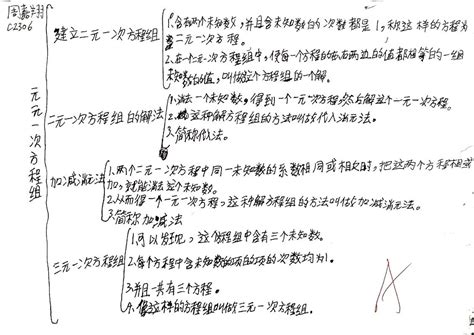 周嘉翔
C2306
二元一次方程组
建立二元一次方程组
1.含有两个未知数，并且含未知数的次数都是1，称这样的方程为
二元一次方程。
2.在一个二元一次方程组中，使每个方程的左右两边的值都相等的一组
未知数的值，叫做这个方程组的一个解。
二元一次方程组的解法
1.消去一个未知数，得到一个一元一次方程，然后解这个一元一次方程。
2.这种解方程组的方法叫做代入消元法。
3.简称代入法。
加减消元法
1.两个二元一次方程中同一未知数的系数相同或相反时，把这两个方程相减或
加，就能消去这个未知数。
2.从而得一个一元一次方程，这种解方程组的方法叫做加减消元法。
3.简称加减法
三元一次方程组
1.可以发现，这个方程组中含有三个未知数。
2.每个方程中含未知数的项的项的次数均为1。
3.并且一共有三个方程。
4.像这样的方程组叫做三元一次方程组。
A